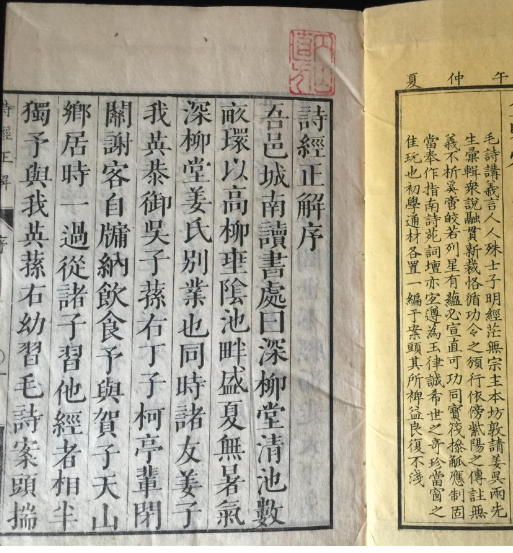 午仲夏
毛詩講義言人人殊士子明經茫無宗主本坊敦請姜吳兩先
生彙輯衆說融貫新裁恪循功令之頒行依傍紫陽之傳註無
義不析奚啻皎若列星有蘊必宣直可功同寶筏操觚應制固
當奉作指南詩苑詞壇亦宜遵為玉律誠希世之奇珍當窗之
佳玩也初學通材各置一編于案頭其所裨益良復不淺
詩經正解序
吾邑城南讀書處曰深柳堂清池數
畝環以高柳垂陰池畔盛夏無暑氣
深柳堂姜氏別業也同時諸友姜子
我英恭御吳子蓀右丁子柯亭輩閉
關謝客自牖納飲食予與賀子天山
鄉居時一過從諸子習他經者相半
獨予與我英蓀右幼習毛詩案頭揣
詩經正解 序